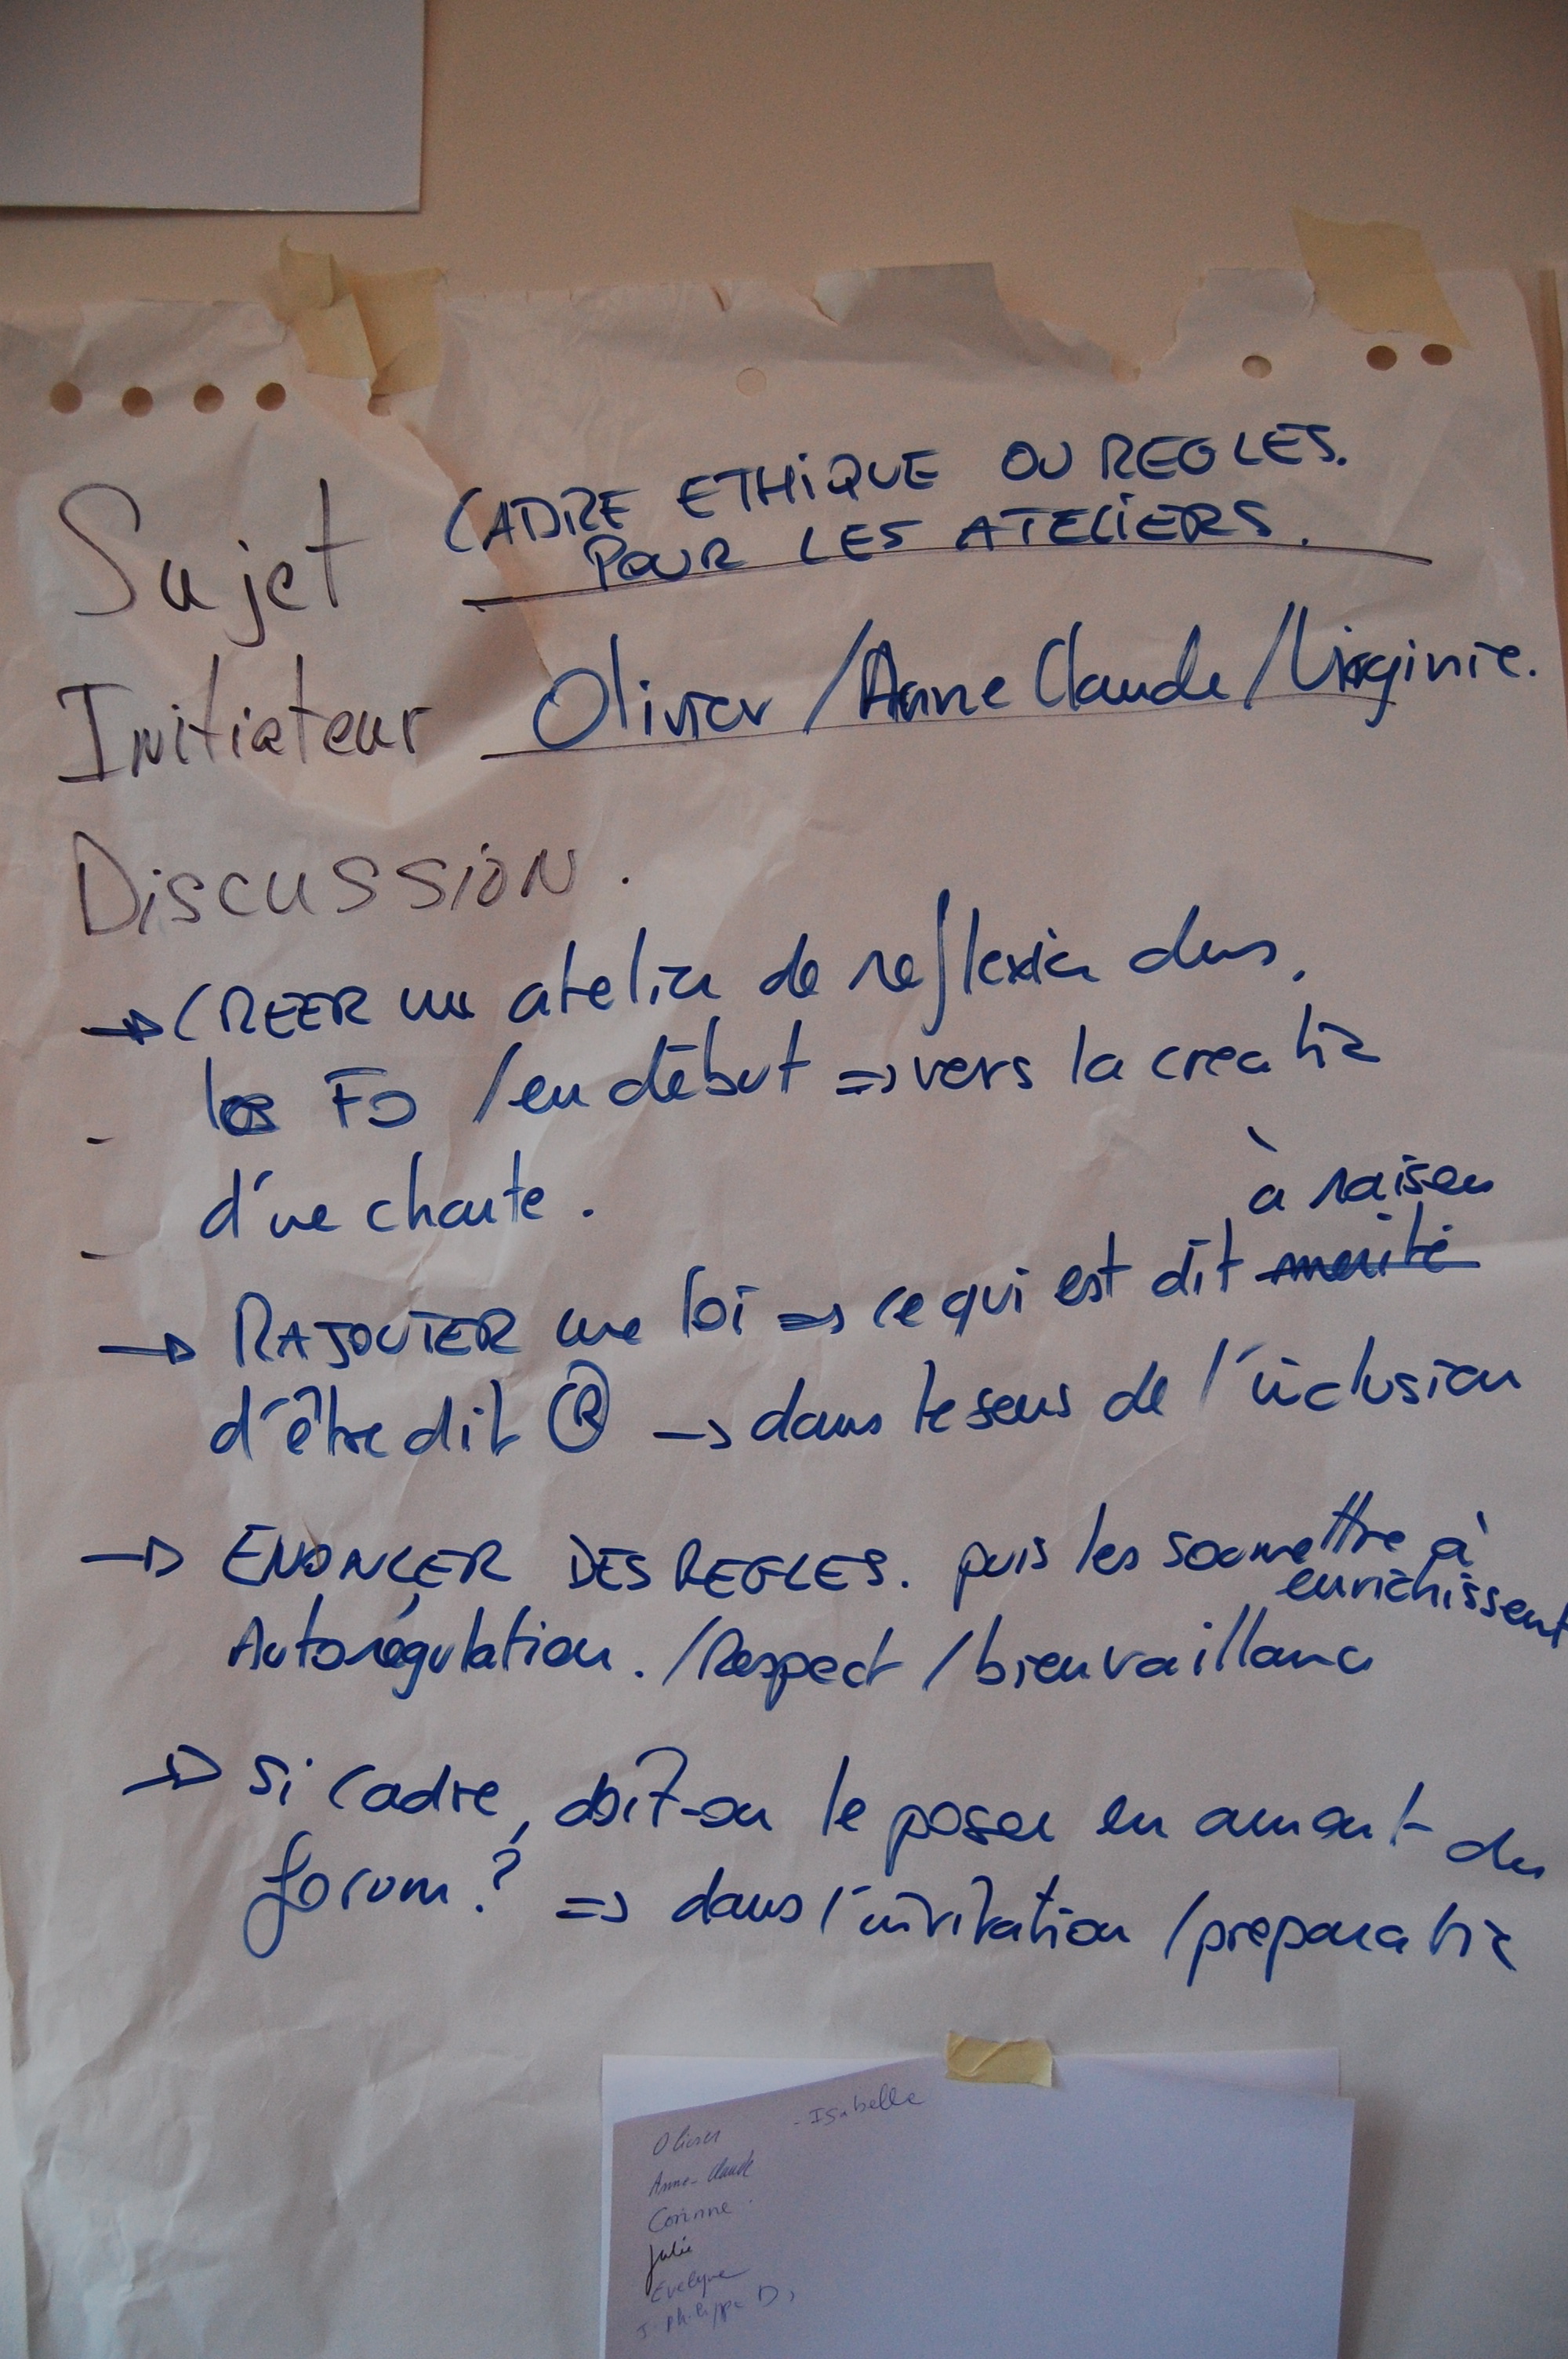 Sujet CADRE ETHIQUE OU REGLES.
POUR LES ATELIERS.
Initiateur Olivier / Anne Claude / Virginie.
DISCUSSION.
→ CREER un atelier de reflexion dans
les FO / en début => vers la creatio
d'une charte.
à raison
→ RAJOUTER une loi => ce qui est dit merité
d'être dit ® → dans le sens de l'inclusion
→ ENONCER DES REGLES. puis les soumettre à
enrichissent
Autorégulation. / Respect / bienvaillance
→ Si cadre, doit-on le poser en amont du
forum? => dans l'invitation / preparatio
Olivier - Isabelle
Anne-Claude
Corinne
Julie
Evelyne
J. Philippe D.